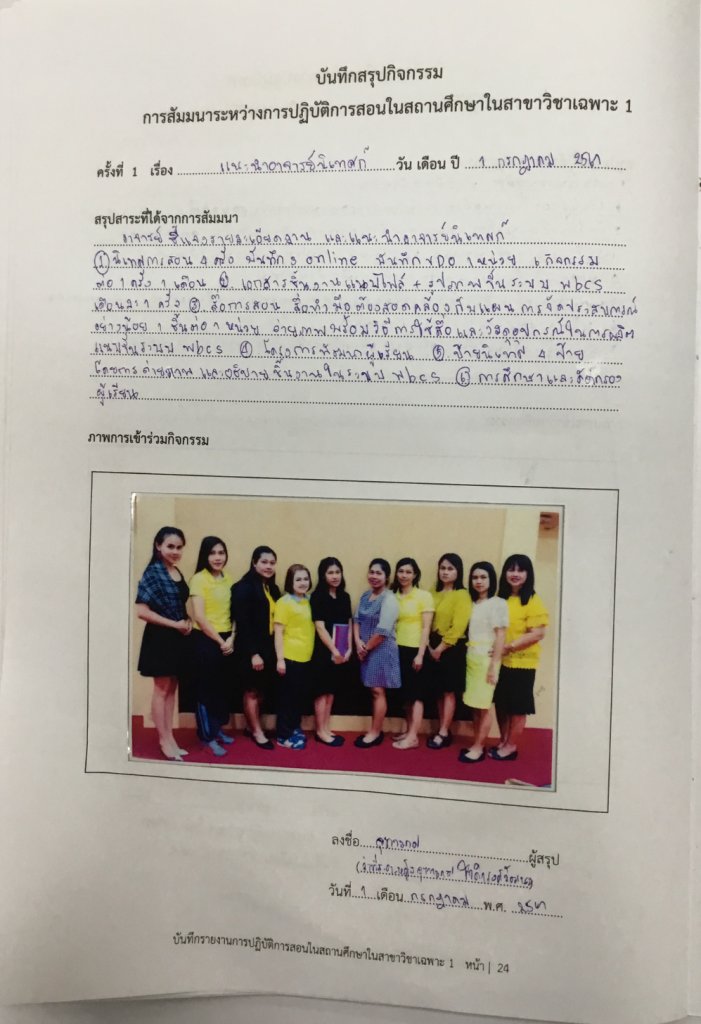 บันทึกสรุปกิจกรรม
การสัมมนาระหว่างการปฏิบัติการสอนในสถานศึกษาในสาขาวิชาเฉพาะ 1
ครั้งที่ 1 เรื่อง แนะนำอาจารย์นิเทศก์ วัน เดือน ปี 1 กรกฎาคม
สรุปสาระที่ได้จากการสัมมนา
อาจารย์ ชี้แจงรายละเอียดงาน และแนะนำอาจารย์นิเทศก์
① นิเทศการสอน 4 ครั้ง บันทึก online บันทึก VDO 1 หน่วย 6 กิจกรรม
ต่อ 1 ครั้ง 1 เดือน ② เอกสารชิ้นงานแนบไฟล์ + รูปภาพขึ้นระบบ wbcs
เดือนละ 1 ครั้ง ③ สื่อการสอน สื่อทำมือต้องสอดคล้องกับแผนการจัดประสบการณ์
อย่างน้อย 1 ชิ้นต่อ 1 หน่วย ถ่ายภาพพร้อมวิธีการใช้สื่อและวัสดุอุปกรณ์ในการผลิต
แนบขึ้นระบบ wbcs ④ โครงการพัฒนาผู้เรียน ⑤ ป้ายนิเทศ 4 ป้าย
โดยการถ่ายภาพและอธิบายชิ้นงานในระบบ wbcs ⑥ การศึกษาและคัดกรอง
ผู้เรียน
ภาพการเข้าร่วมกิจกรรม
ลงชื่อ ผู้สรุป
วันที่ 1 เดือน กรกฎาคม พ.ศ.
บันทึกรายงานการปฏิบัติการสอนในสถานศึกษาในสาขาวิชาเฉพาะ 1 หน้า | 24